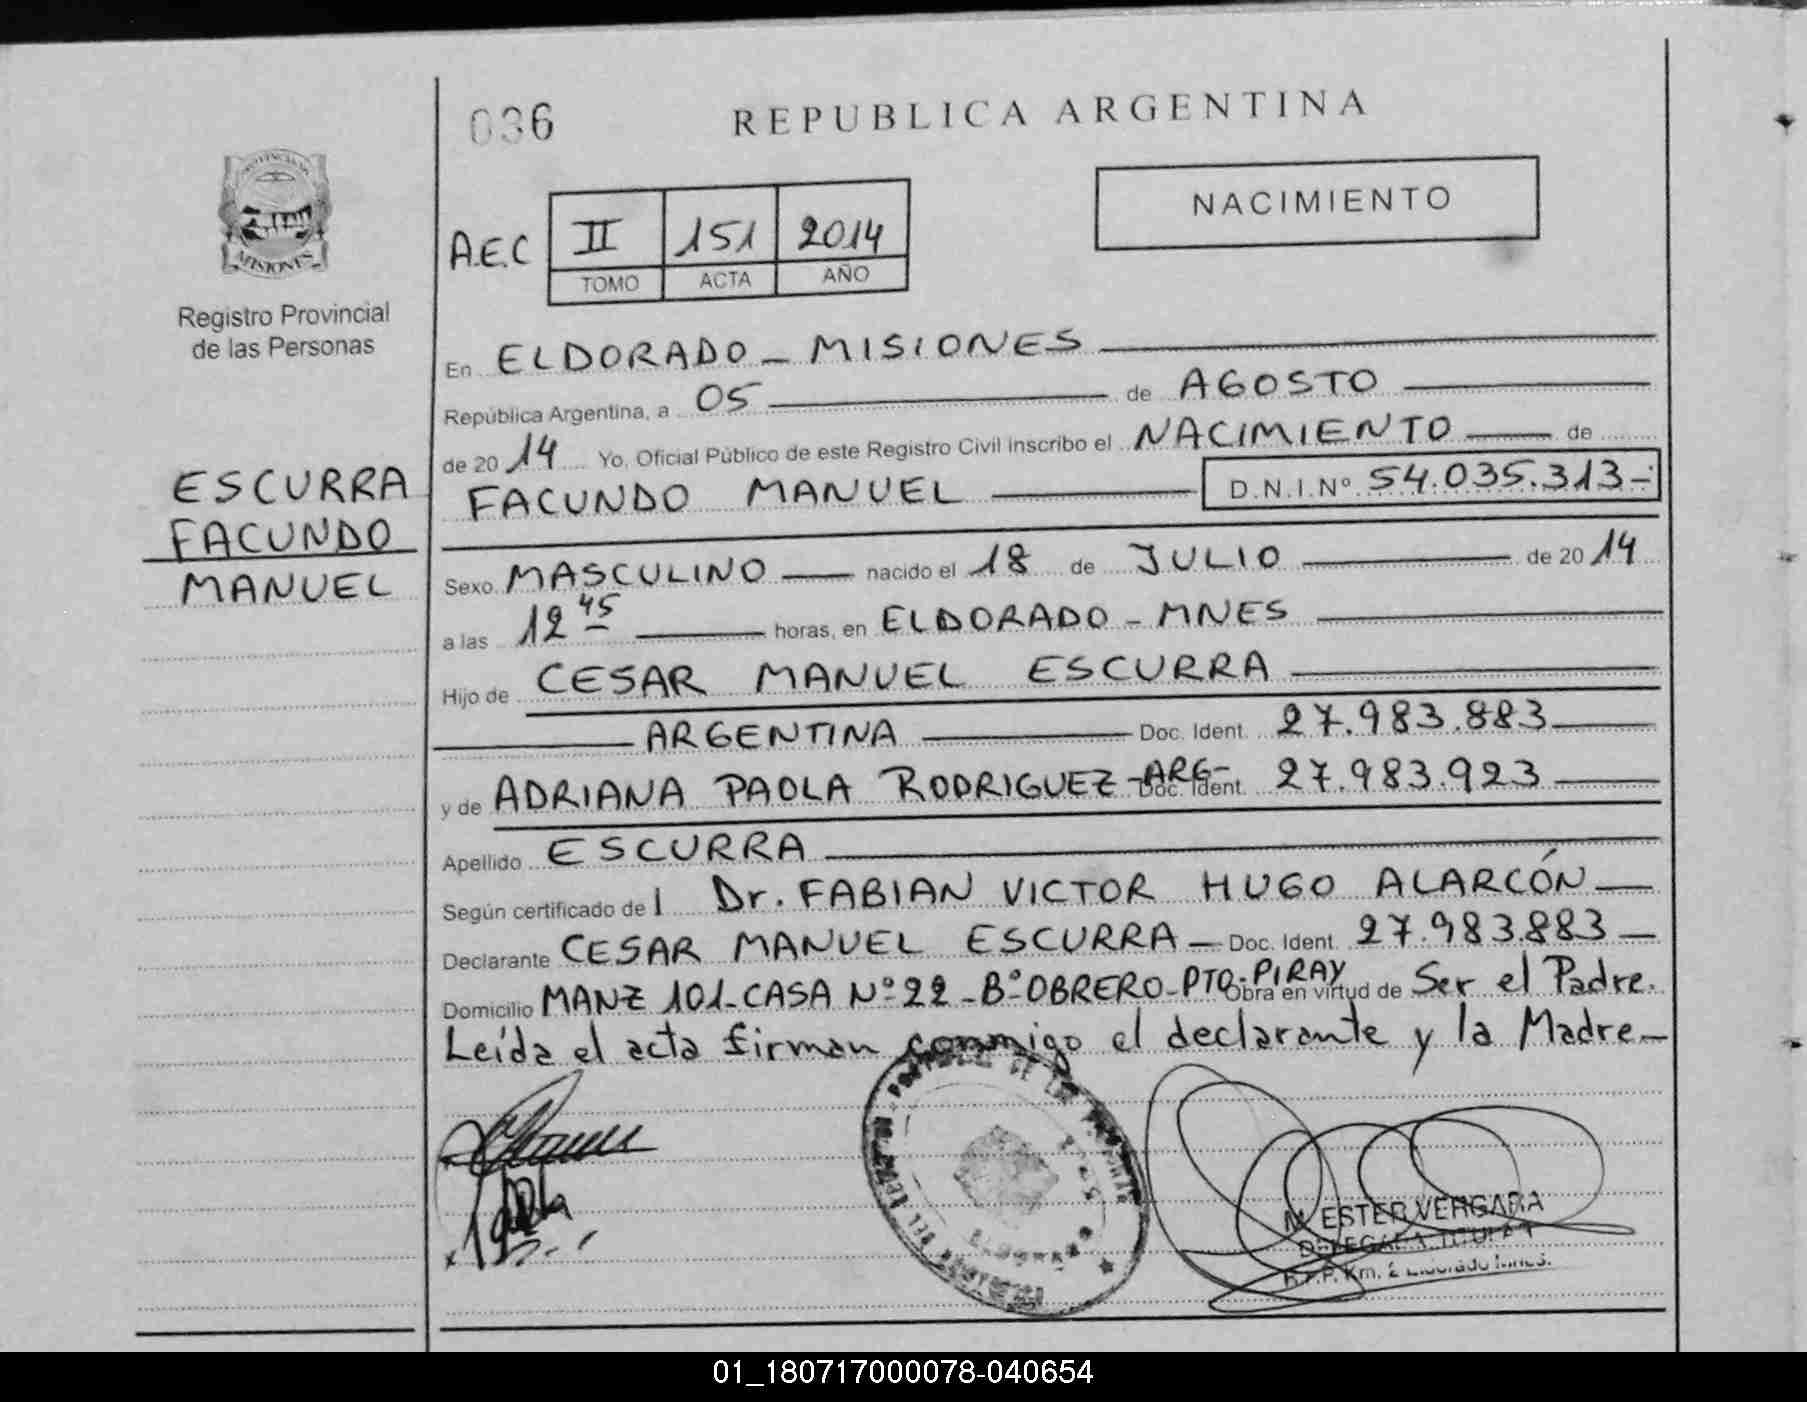 036
REPUBLICA ARGENTINA
NACIMIENTO
A.E.C II 151 2014
TOMO ACTA AÑO
MISIONES
Registro Provincial
de las Personas
ESCURRA
FACUNDO
MANUEL
En ELDORADO - MISIONES
República Argentina, a 05 de AGOSTO
de 2014 Yo, Oficial Público de este Registro Civil inscribo el NACIMIENTO de
FACUNDO MANUEL D.N.I.Nº 54.035.313-
Sexo MASCULINO nacido el 18 de JULIO de 2014
a las 12 45 horas, en ELDORADO - MNES
Hijo de CESAR MANUEL ESCURRA
ARGENTINA Doc. Ident. 27.983.883
y de ADRIANA PAOLA RODRIGUEZ -ARG- Doc. Ident. 27.983.923
Apellido ESCURRA
Según certificado de l Dr. FABIAN VICTOR HUGO ALARCÓN
Declarante CESAR MANUEL ESCURRA - Doc. Ident. 27.983.883
Domicilio MANZ 101-CASA Nº 22 - Bº OBRERO-PTO-PIRAY Obra en virtud de Ser el Padre.
Leída el acta firman conmigo el declarante y la Madre-
M. ESTER VERGARA
R.P.P. Km. 2 Eldorado Mnes.
01_180717000078-040654